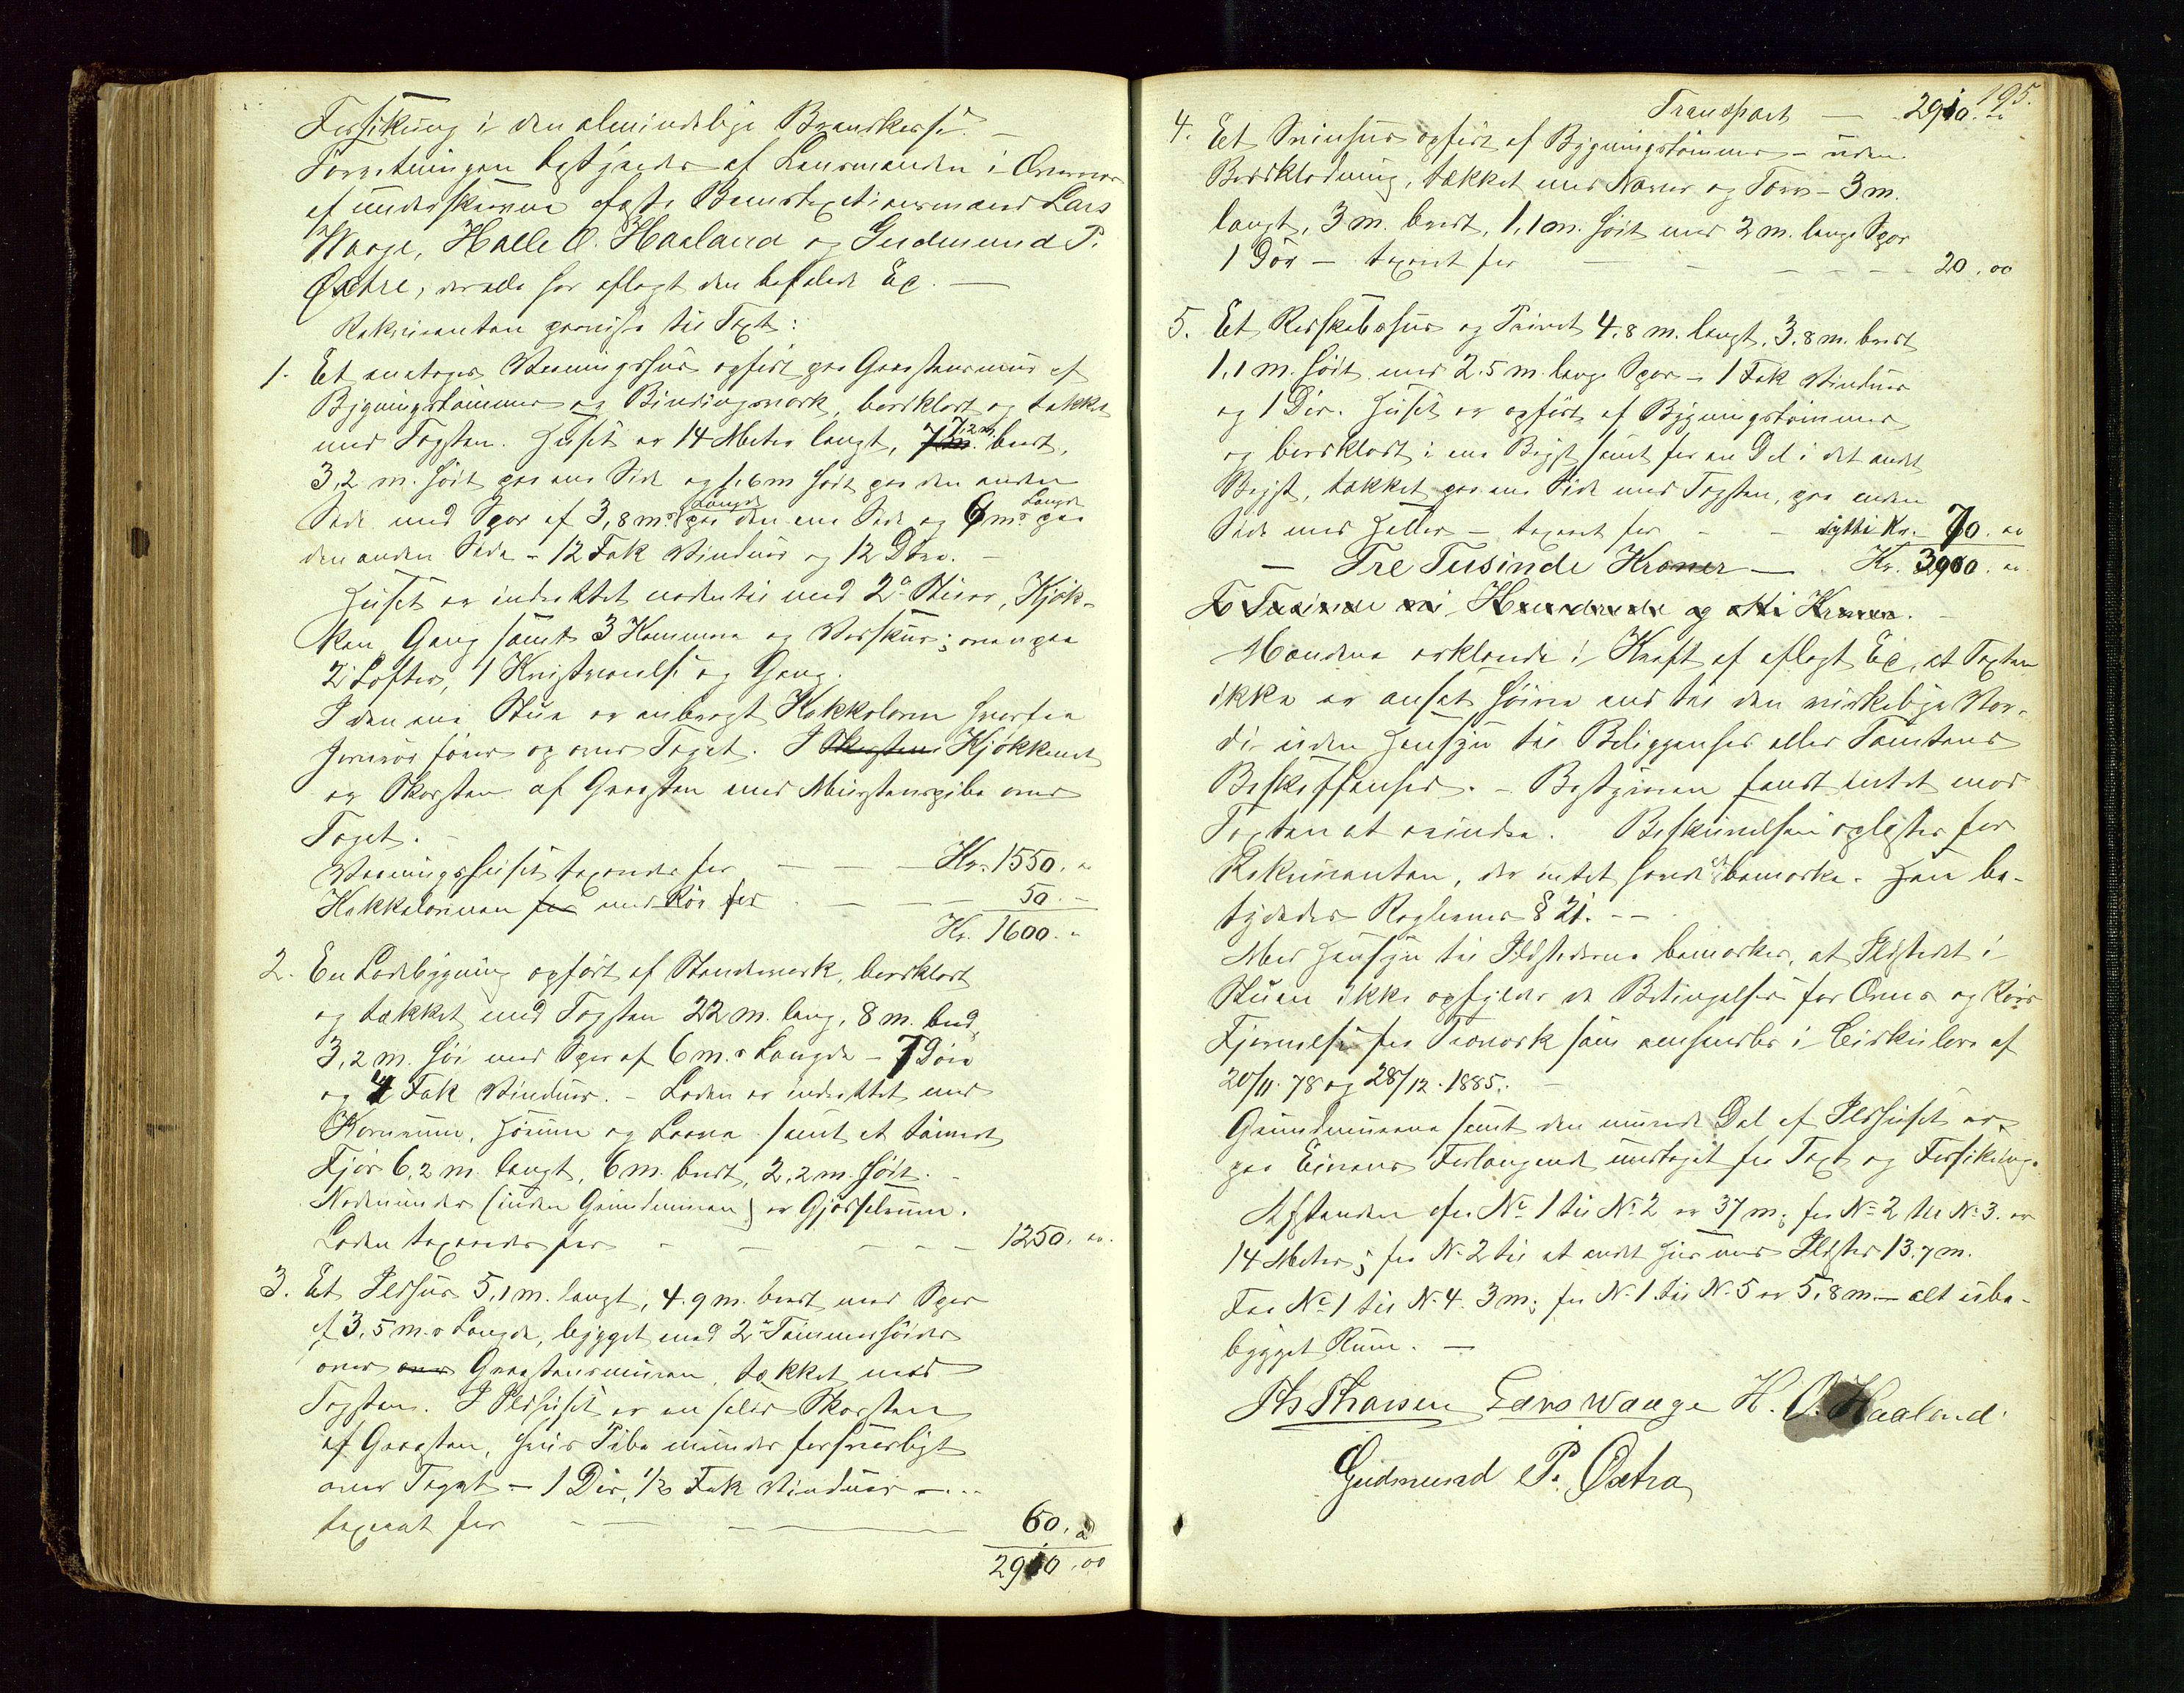 Forsikring i den almindelige Brandkasse. —
Forretningen bestyredes af Lensmanden i Overvær
af underskrevne faste Brandtaxationsmænd Lars
Waage, Halle O. Haaland og Gudmund P.
Østre, der alle har aflagt den befalede Ed. —
Rekvirenten paaviste til Taxt:
1. Et enetages Vaaningshus opført paa Graastensmur af
Bygningstømmer og Bindingsværk, bordklædt og tækket
med Tagsten. Huset er 14 Meter langt, 7,2 m. bredt,
3,2 m. høit paa ene Side og 1,6 m høit paa den anden
Side med Spær af 3,8 m.s Længde paa den ene Side og 6 m.s Længde paa
den anden Side – 12 Fak Vinduer og 12 Døre. –
Huset er indrettet nedentil med 2de Stuer, Kjøk-
ken, Gang samt 3 Kammere og Vorskur; ovenpaa
2 Lofter, 1 Kvistværelse og Gang.
I den ene Stue er anbragt Kakkelovn hvorfra
Jernrør fører op over Taget. I Skorsten Kjøkkenet
er Skorsten af Graasten med Murstenspibe over
Taget. –
Vaaningshuset taxeredes for — — — Kr. 1550. "
Kakkelovnen for med Rør for — — — 50. –
Kr. 1600. "
2. En Ladebygning opført af Stavværk, bordklædt
og tækket med Tagsten 22 m. lang, 8 m. bred,
3,2 m. høi med Spær af 6 m.s Længde – 7 Døre
og 4 Fak Vinduer. – Laden er indrettet med
Kornrum, Hørum og Laave samt et tømret
Fjøs 6,2 m. langt, 6 m. bredt, 2,2 m. høit. –
Nedenunder (inden Grundmuren) er Gjødselrum.
Laden taxeredes for – – – – – 1250. "
3. Et Ildhus 5,1 m. langt, 4.9 m. bredt med Spær
af 3,5 m.s Længde, bygget med 2de Tømmerhøider
over over Graastensmuren, tækket med
Tagsten. I Ildhuset er en solid Skorsten
af Graasten, hvis Pibe munder forsvarligt
over Taget – 1 Dør, 1/2 Fak Vinduer – . –
taxeret for – — — 60. "
2910,00
195.
Transport — 2910. "
4. Et Svinhus opført af Bygningstømmer – uden
Bordklædning, tækket med Næver og Torv – 3 m.
langt, 3 m. bredt, 1,1 m. høit med 2 m. lange Spær
1 Dør – taxeret for — – – – – 20.00
5. Et Redskabshus og Privet 4,8 m. langt, 3,8 m. bredt
1,1 m. høit med 2.5 m. lange Spær – 1 Fak Vinduer
og 1 Dør. Huset er opført af Bygningstømmer
og bordklædt i ene Bust samt for en Del i det andet
Bust, tækket paa ene Side med Tagsten, paa anden
Side med Heller – taxeret for – – sytti Kr. – 70. "
– Tre Tusinde Kroner — Kr. 3000. "
To Tusinde ni Hundrede og otti Kroner. –
Mændene erklærede i Kraft af aflagt Ed, at Taxten
ikke er ansat høiere end til den virkelige Vær-
di uden Hensyn til Beliggenhed eller Tomtens
Beskaffenhed. – Bestyreren fandt intet mod
Taxten at erindre. Beskrivelsen oplæstes for
Rekvirenten, der intet havde at bemærke. Han be-
tydedes Reglernes § 21. – –
Med Hensyn til Ildstederne bemærkes, at Ildstedet i
Stuen ikke opfylder de Betingelser for Ovns og Rørs
Fjernelse fra Træværk som omhandles i Cirkulære af
20/11. 78 og 28/12. 1885. –
Grundmurene samt den murede Del af Ildhuset er
paa Eierens Forlangende undtaget fra Taxt og Forsikring.
Afstanden fra No 1 til No 2 er 37 m; fra No 2 til No 3. er
14 Meter; fra No 2 til et andet Hus med Ildsted 13.7 m.
Fra No 1 til No 4. 3 m; fra No 1 til No 5 er 5,8 m. – alt ube-
bygget Rum. —
Ths Thorsen Lars Waage H. O. Haaland
Gudmund P. Østra